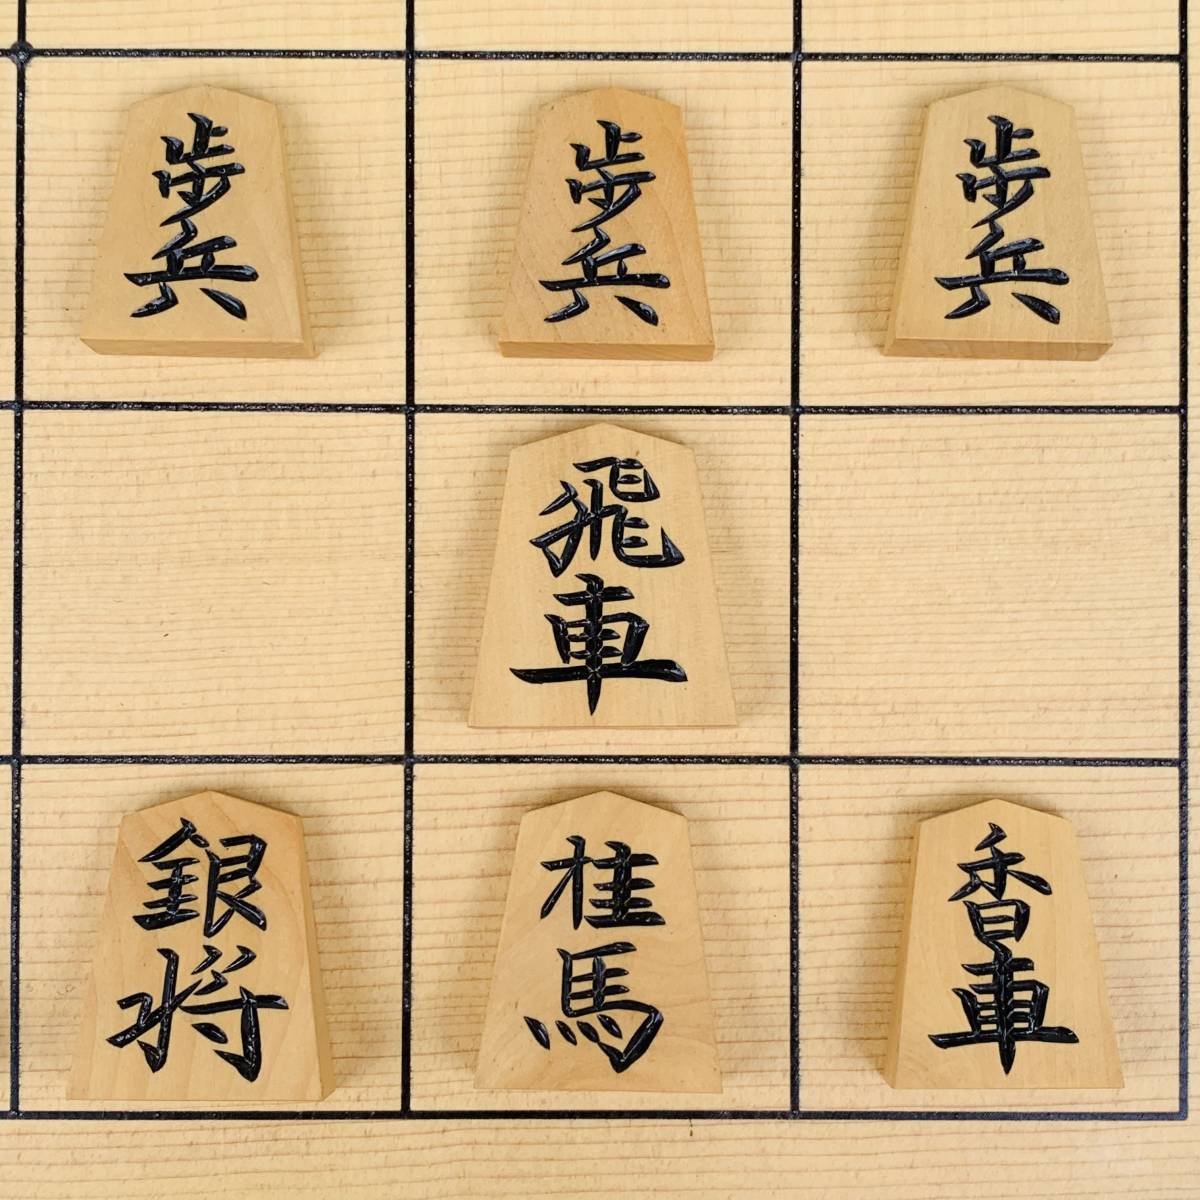 歩兵
歩兵
歩兵
飛車
銀将
桂馬
香車